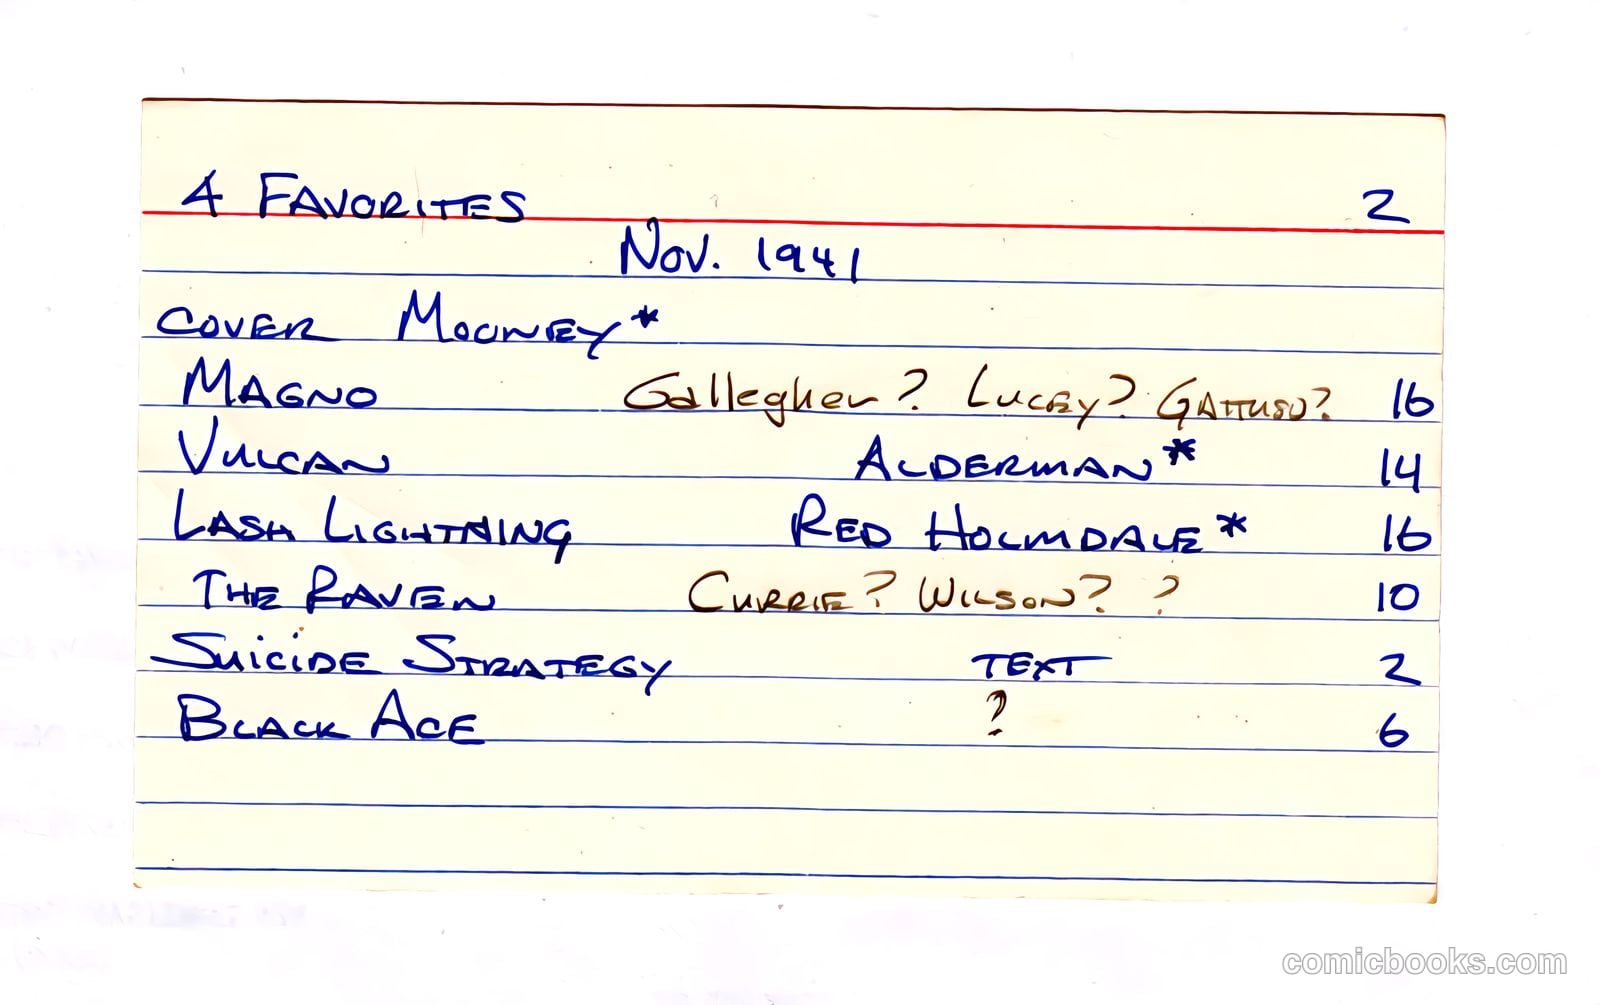 4 FAVORITES 2
Nov. 1941
COVER MOONEY*
MAGNO Gallegher? LUCEY? GATTUSO? 16
VULCAN ALDERMAN* 14
LASH LIGHTNING RED HOLMDALE* 16
THE RAVEN CURRIE? WILSON? ? 10
SUICIDE STRATEGY TEXT 2
BLACK ACE ? 6
comicbooks.com